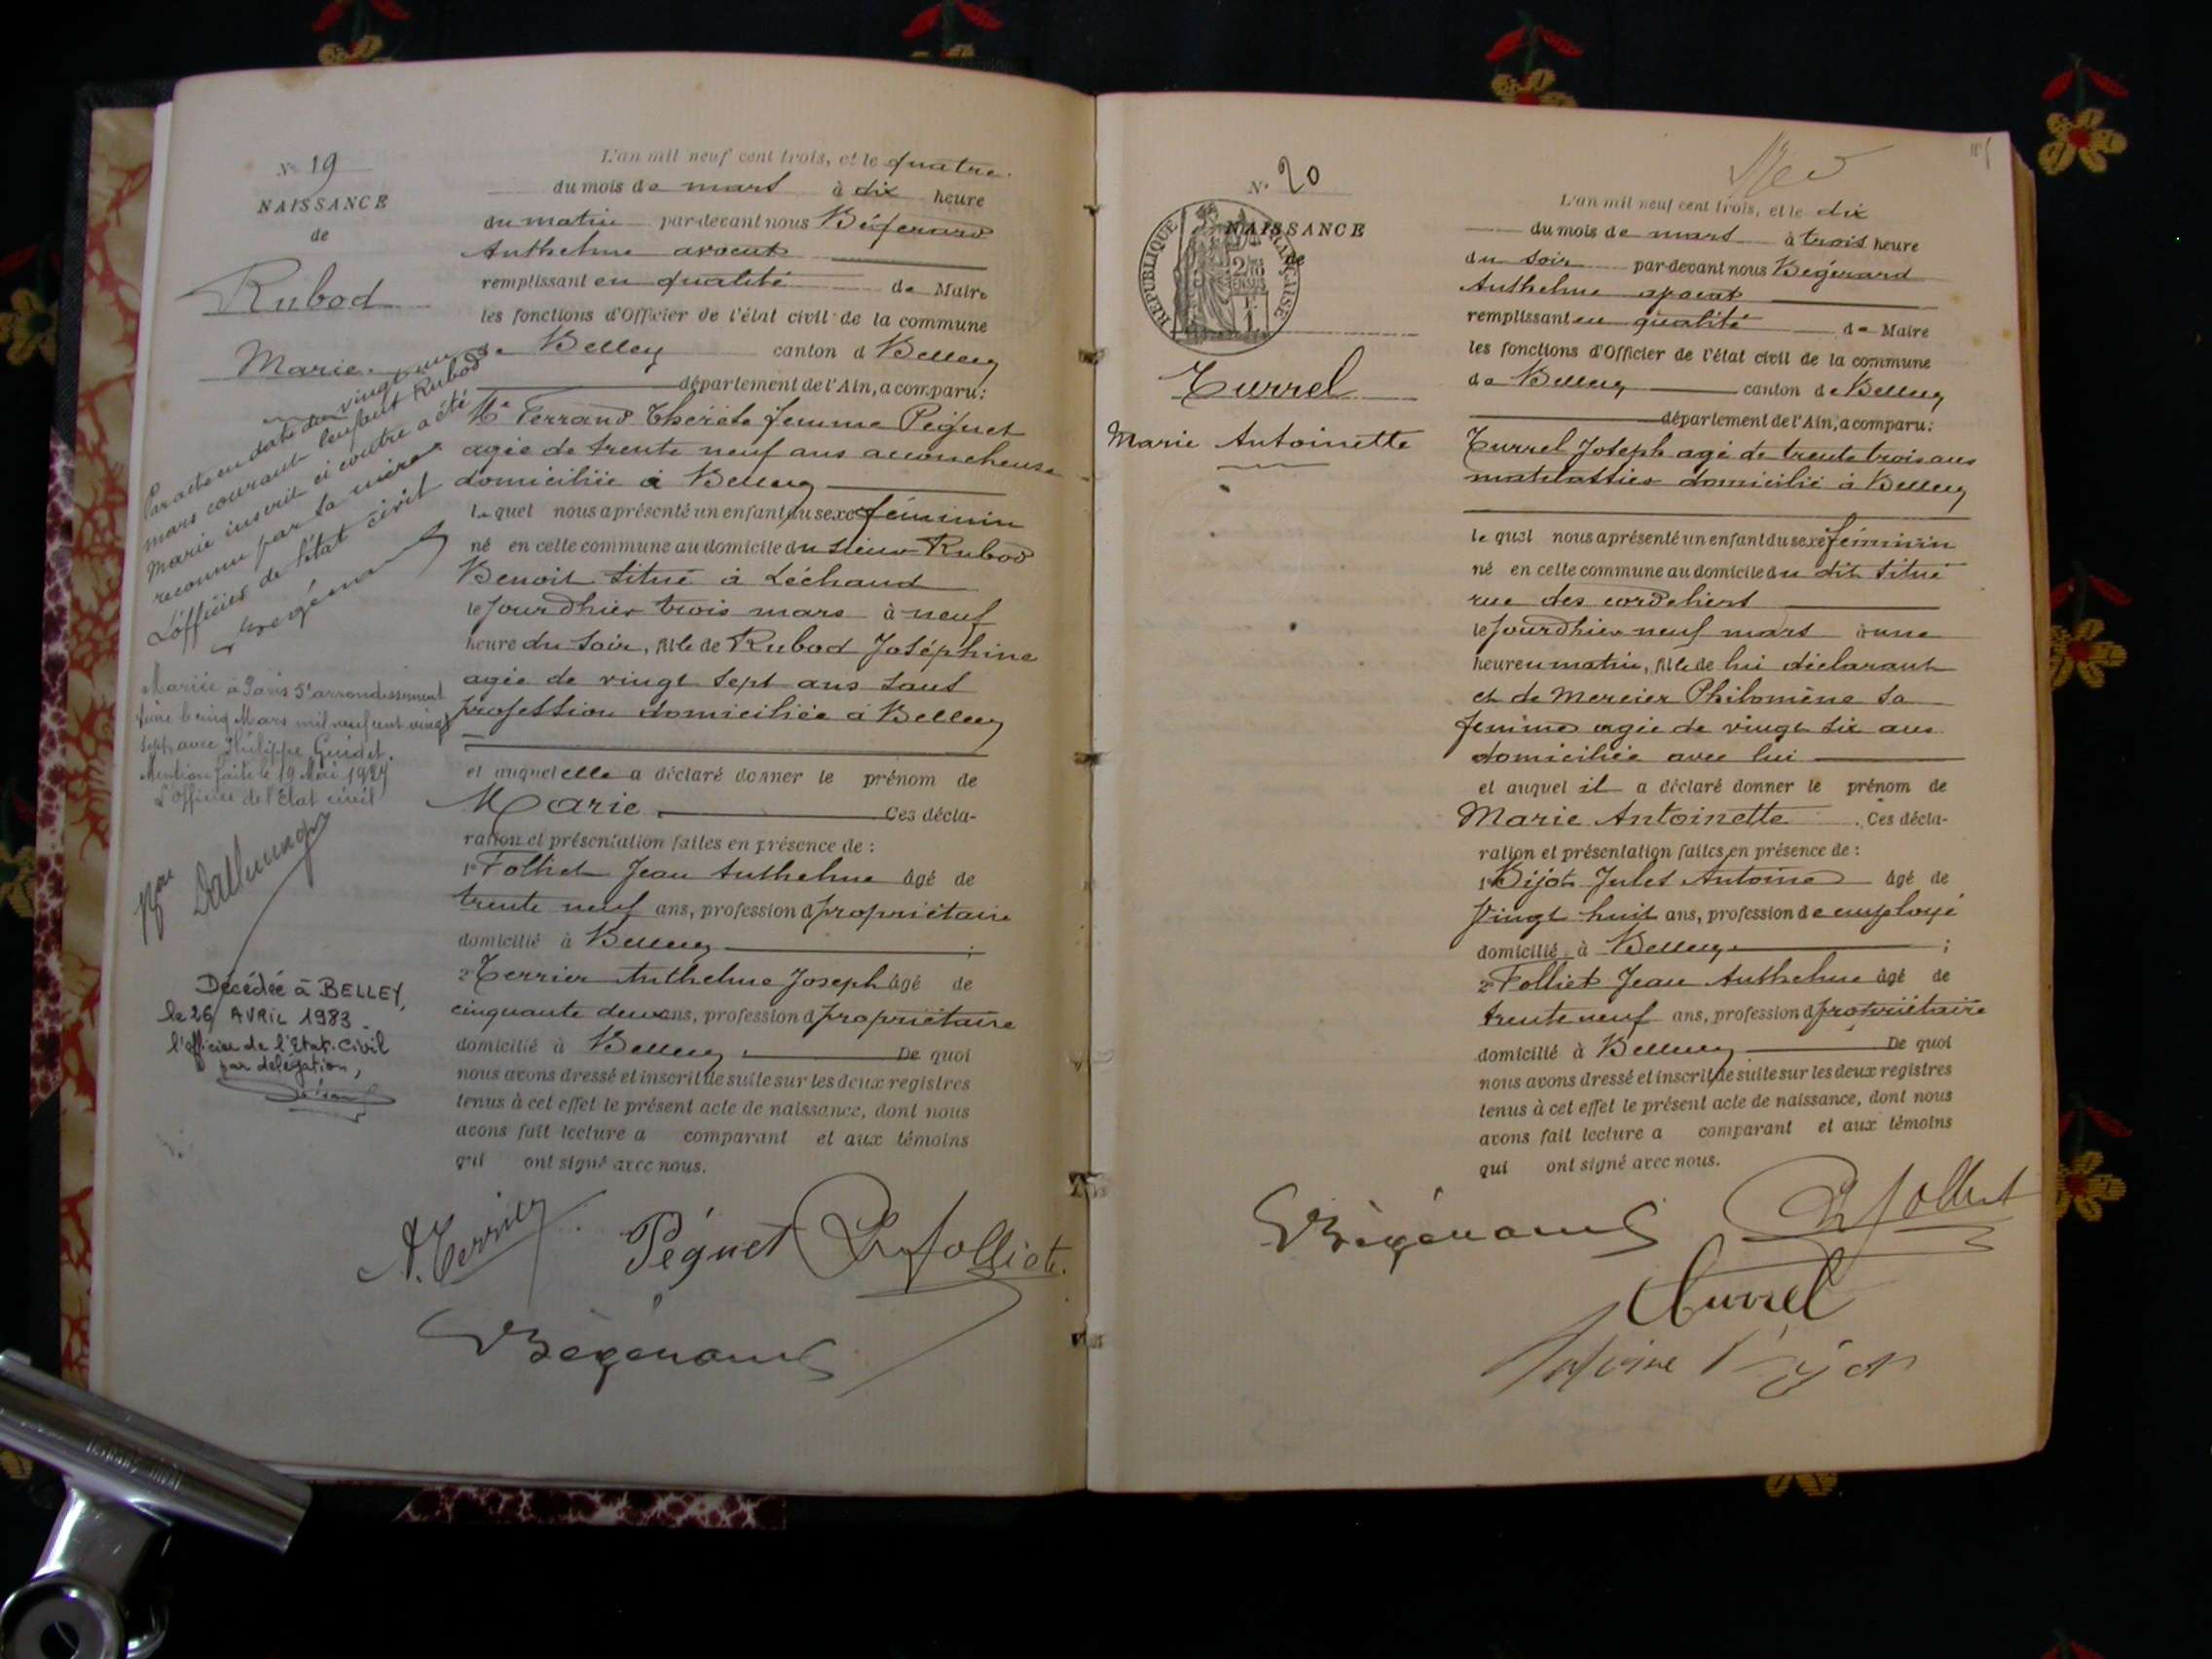 N° 19
NAISSANCE
de
Rubod
Marie
Par acte en date du vingt un
mars courant l'enfant Rubod
Marie inscrit ci contre a été
reconnu par sa mère
L'officier de l'état civil
Begérard
Mariée à Paris 5e arrondissement
le cinq Mars mil neuf cent vingt
sept avec Philippe Guidet.
Mention faite le 19 Mai 1927
L'officier de l'Etat civil
Décédée à BELLEY,
le 26 AVRIL 1983.
l'officier de l'Etat-Civil
par délégation,
L'an mil neuf cent trois, et le quatre
du mois de mars à dix heure
du matin par-devant nous Bégerard
Anthelme avocat
remplissant en qualité de Maire
les fonctions d'Officier de l'état civil de la commune
de Belley canton d Belley
département de l'Ain, a comparu:
Me Ferrand Thérèse femme Péguet
agée de trente neuf ans accoucheuse
domiciliée à Belley
lequel nous a présenté un enfant du sexe féminin
né en cette commune au domicile du sieur Rubod
Benoit situé à Léchaud
le jourdhier trois mars à neuf
heure du soir, fille de Rubod Joséphine
agée de vingt sept ans sans
profession domiciliée à Belley
et auquel elle a déclaré donner le prénom de
Marie Ces décla-
ration et présentation faites en présence de :
1° Folliet Jean Anthelme âgé de
trente neuf ans, profession d propriétaire
domicilié à Belley ;
2° Terrier Anthelme Joseph âgé de
cinquante deux ans, profession d propriétaire
domicilié à Belley De quoi
nous avons dressé et inscrit de suite sur les deux registres
tenus à cet effet le présent acte de naissance, dont nous
avons fait lecture a comparant et aux témoins
qui ont signé avec nous.
A. Terrier Péguet Folliet
Bégérard
N° 20
NAISSANCE
de
RÉPUBLIQUE FRANÇAISE
Turrel
Marie Antoinette
L'an mil neuf cent trois, et le dix
du mois de mars à trois heure
du soir par-devant nous Begérard
Anthelme avocat
remplissant en qualité de Maire
les fonctions d'Officier de l'état civil de la commune
de Belley canton de Belley
département de l'Ain, a comparu:
Turrel Joseph agé de trente trois ans
matelassier domicilié à Belley
lequel nous a présenté un enfant du sexe féminin
né en cette commune au domicile du dit situé
rue des cordeliers
le jourdhier neuf mars à une
heure u matin, fille de lui déclarant
et de Mercier Philomène sa
femme agée de vingt six ans
domiciliée avec lui
et auquel il a déclaré donner le prénom de
Marie Antoinette . Ces décla-
ration et présentation faites en présence de :
1° Bijot Jules Antoine âgé de
Vingt huit ans, profession de employé
domicilié à Belley ;
2° Folliet Jean Anthelme âgé de
trente neuf ans, profession d propriétaire
domicilié à Belley De quoi
nous avons dressé et inscrit de suite sur les deux registres
tenus à cet effet le présent acte de naissance, dont nous
avons fait lecture a comparant et aux témoins
qui ont signé avec nous.
Bégérard Folliet
Turrel
Antoine Bijot